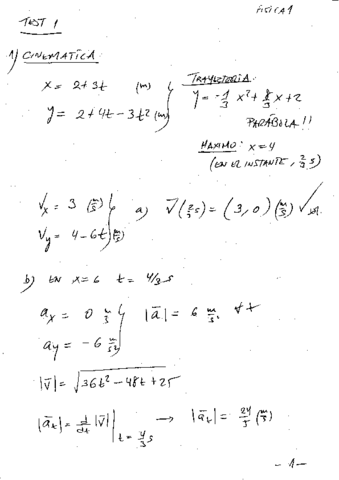 FISICA 1
TEST 1
1) CINEMATICA:
x = 2+3t (m)
y = 2+4t-3t² (m)
TRAYECTORIA:
y = -1/3 x² + 8/3 x + 2
PARÁBOLA!!
MAXIMO: x=4
(EN EL INSTANTE, 2/3 s)
Vx = 3 (m/s)
Vy = 4-6t (m/s)
a) V̄(2/3 s) = (3,0) (m/s)
b) EN x=6 t = 4/3 s
ax = 0 m/s²
ay = -6 m/s²
|ā| = 6 m/s² ∀t
|V̄| = √36t²-48t+25
|āt| = d/dt |V̄| | t = 4/3 s → |āt| = 24/5 (m/s²)
-1-